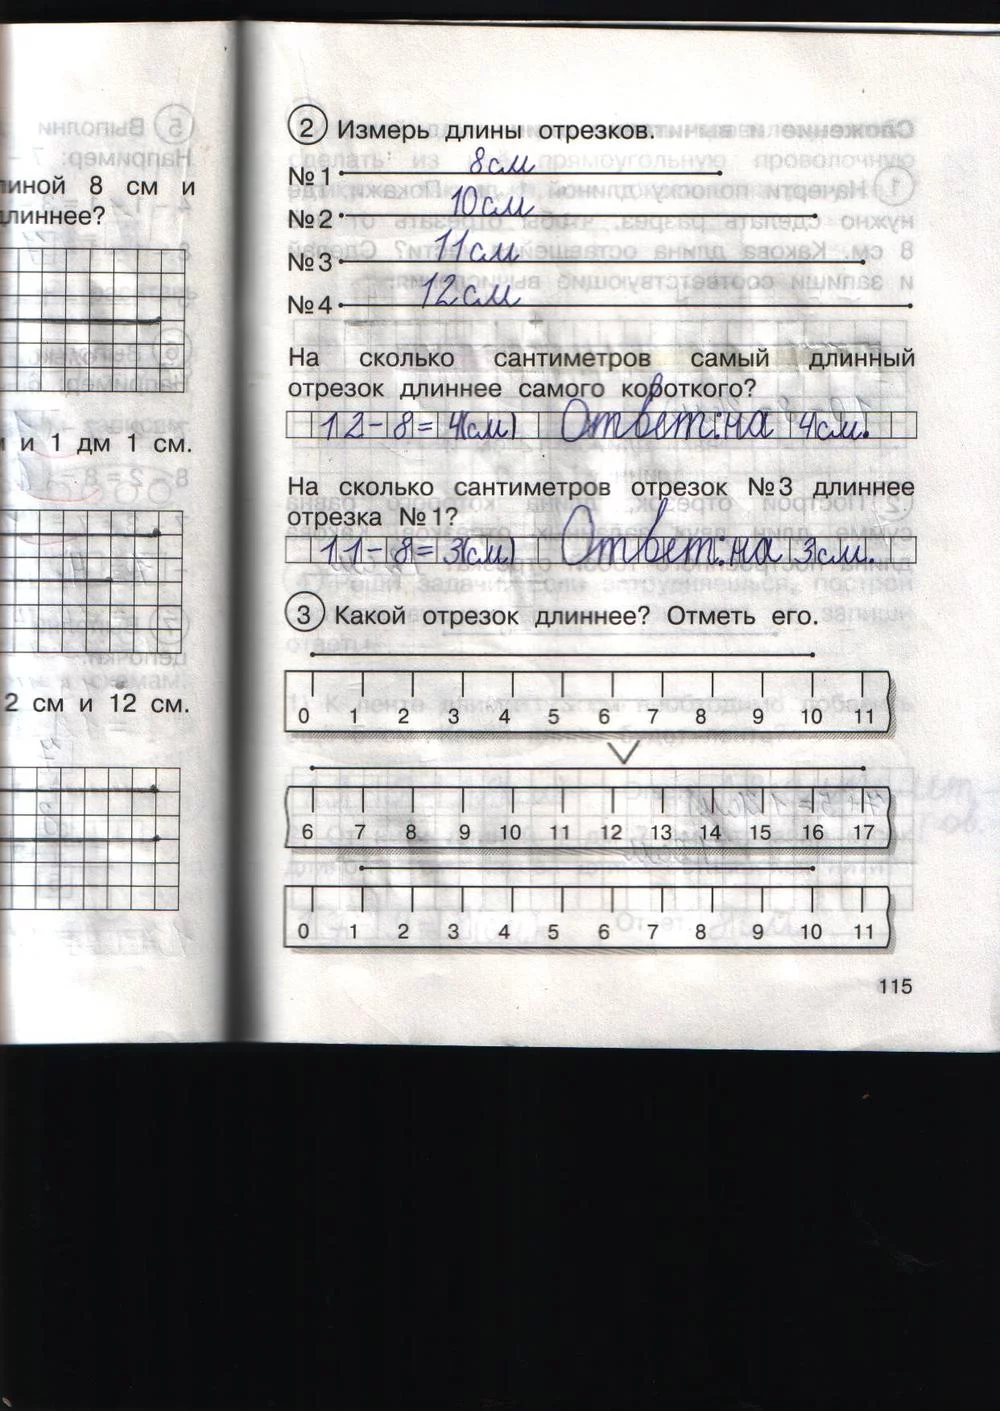 иной 8 см и
длиннее?
и 1 дм 1 см.
2 см и 12 см.
2 Измерь длины отрезков.
№1 8см
№2 10см
№3 11см
№4 12см
На сколько сантиметров самый длинный
отрезок длиннее самого короткого?
12-8=4(см) Ответ:на 4см.
На сколько сантиметров отрезок №3 длиннее
отрезка №1?
11-8=3(см) Ответ:на 3см.
3 Какой отрезок длиннее? Отметь его.
0 1 2 3 4 5 6 7 8 9 10 11
6 7 8 9 10 11 12 13 14 15 16 17
0 1 2 3 4 5 6 7 8 9 10 11
115